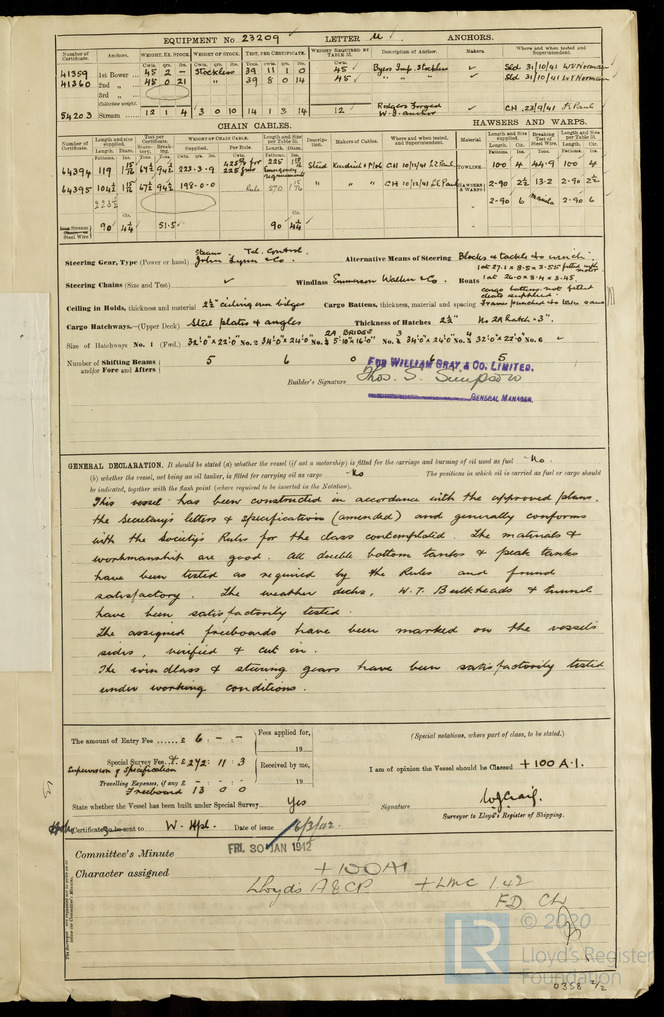 EQUIPMENT No. 23209 LETTER M ANCHORS.
Number of Certificate. Anchors. WEIGHT, EX. STOCK. WEIGHT OF STOCK. TEST, PER CERTIFICATE. WEIGHT REQUIRED BY TABLE 53. Description of Anchor. Makers. Where and when tested and Superintendent.
Cwts. qrs. lbs. Cwts. qrs. lbs. Tons. cwts. qrs. lbs. Cwts.
41359 1st Bower 45 2 - Stockless 39 11 1 0 45 Byers Imp. Stockless ✓ Sld 31/10/41
41360 2nd „ 45 0 21 „ 39 8 0 14 45 „ „ „ ✓ Sld 31/10/41
3rd „
Collective weight.
5403 Stream 12 1 4 3 0 10 14 1 3 14 12 Rodgers Forged W.I. anchor ✓ CH 23/9/41
CHAIN CABLES. HAWSERS AND WARPS.
Number of Certificate. Length and size supplied. Test per Certificate. WEIGHT OF CHAIN CABLE. Length and Size per Table 53. Description. Makers of Cables. Where and when tested, and Superintendent. Material. Length and Size supplied. Breaking Test of Steel Wire. Length and Size per Table 53.
Fathoms. Diam. Supplied. Per Rule. Fathoms. Cir. Tons. Fathoms. Cir.
64394 119 1 15/16 67½ 94½ 223-3-9 225 1 15/16 Stud CH 10/11/41 TOWLINE 100 4 44.9 100 4
Emergency requirements
64395 104½ 1 15/16 67½ 94½ 198-0-0 Rule 270 1 15/16 „ „ „ CH 10/12/41 HAWSERS & WARPS 2-90 2½ 13.2 2-90 2½
223½ 2-90 6 Manila 2-90 6
Iron Stream or Steel Wire 90 4¼ 51.5 90 4¼
Steering Gear, Type (Power or hand) Steam Tel. Control John Lynn & Co. Alternative Means of Steering Blocks & tackle to winch.
Steering Chains (Size and Test) ✓ Windlass Emmerson Walker & Co. Boats 1 at 27.1 × 8.5 × 3.55 fitted with motor
1 at 26.0 × 8.4 × 3.45.
Ceiling in Holds, thickness and material 2½" ceiling over bilges Cargo Battens, thickness, material and spacing cargo battens not fitted cleats supplied. Frames punched to take same
Cargo Hatchways.—(Upper Deck) Steel plates & angles Thickness of Hatches 2½" No 2A Hatch = 3".
Size of Hatchways No. 1 (Fwd.) 32'.0" × 22'.0" No. 2 34'.0" × 24'.0" No. 2A BRIDGE 5'.10" × 16'.0" No. 3 34'.0" × 24'.0" No. 4 32'.0" × 22'.0" No. 6 ✓
Number of Shifting Beams and/or Fore and Afters 5 6 0 6 5
FOR WILLIAM GRAY & CO. LIMITED.
Builder's Signature Thos. S. Simpson
GENERAL MANAGER.
GENERAL DECLARATION. It should be stated (a) whether the vessel (if not a motorship) is fitted for the carriage and burning of oil used as fuel No.
(b) whether the vessel, not being an oil tanker, is fitted for carrying oil as cargo No The positions in which oil is carried as fuel or cargo should
be indicated, together with the flash point (where required to be inserted in the Notation).
This vessel has been constructed in accordance with the approved plans,
the Secretary's letters & specification (amended) and generally conforms
with the Society's Rules for the class contemplated. The materials &
workmanship are good. All double bottom tanks & peak tanks
have been tested as required by the Rules and found
satisfactory. The weather decks, W.T. Bulkheads & tunnel
have been satisfactorily tested.
The assigned freeboards have been marked on the vessel's
sides, verified & cut in.
The windlass & steering gears have been satisfactorily tested
under working conditions.
The amount of Entry Fee ...... £ 6 : - : - Fees applied for, (Special notations, where part of class, to be stated.)
19
Special Survey Fee .. £ 242 : 11 : 3 Received by me, I am of opinion the Vessel should be Classed +100 A.1.
Supervision of Specification
Travelling Expenses, if any £ - : - : - 19
Freeboard 13 0 0
State whether the Vessel has been built under Special Survey Yes Signature W J Craig.
Surveyor to Lloyd's Register of Shipping.
Certificate to be sent to W. Hpl. Date of issue 6/3/42.
FRI. 30 JAN 1942
Committee's Minute
Character assigned +100A1
Lloyd's A&CP +LMC 1.42
FD. CL
LR © 2020
Lloyd's Register
Foundation
0358 2/2